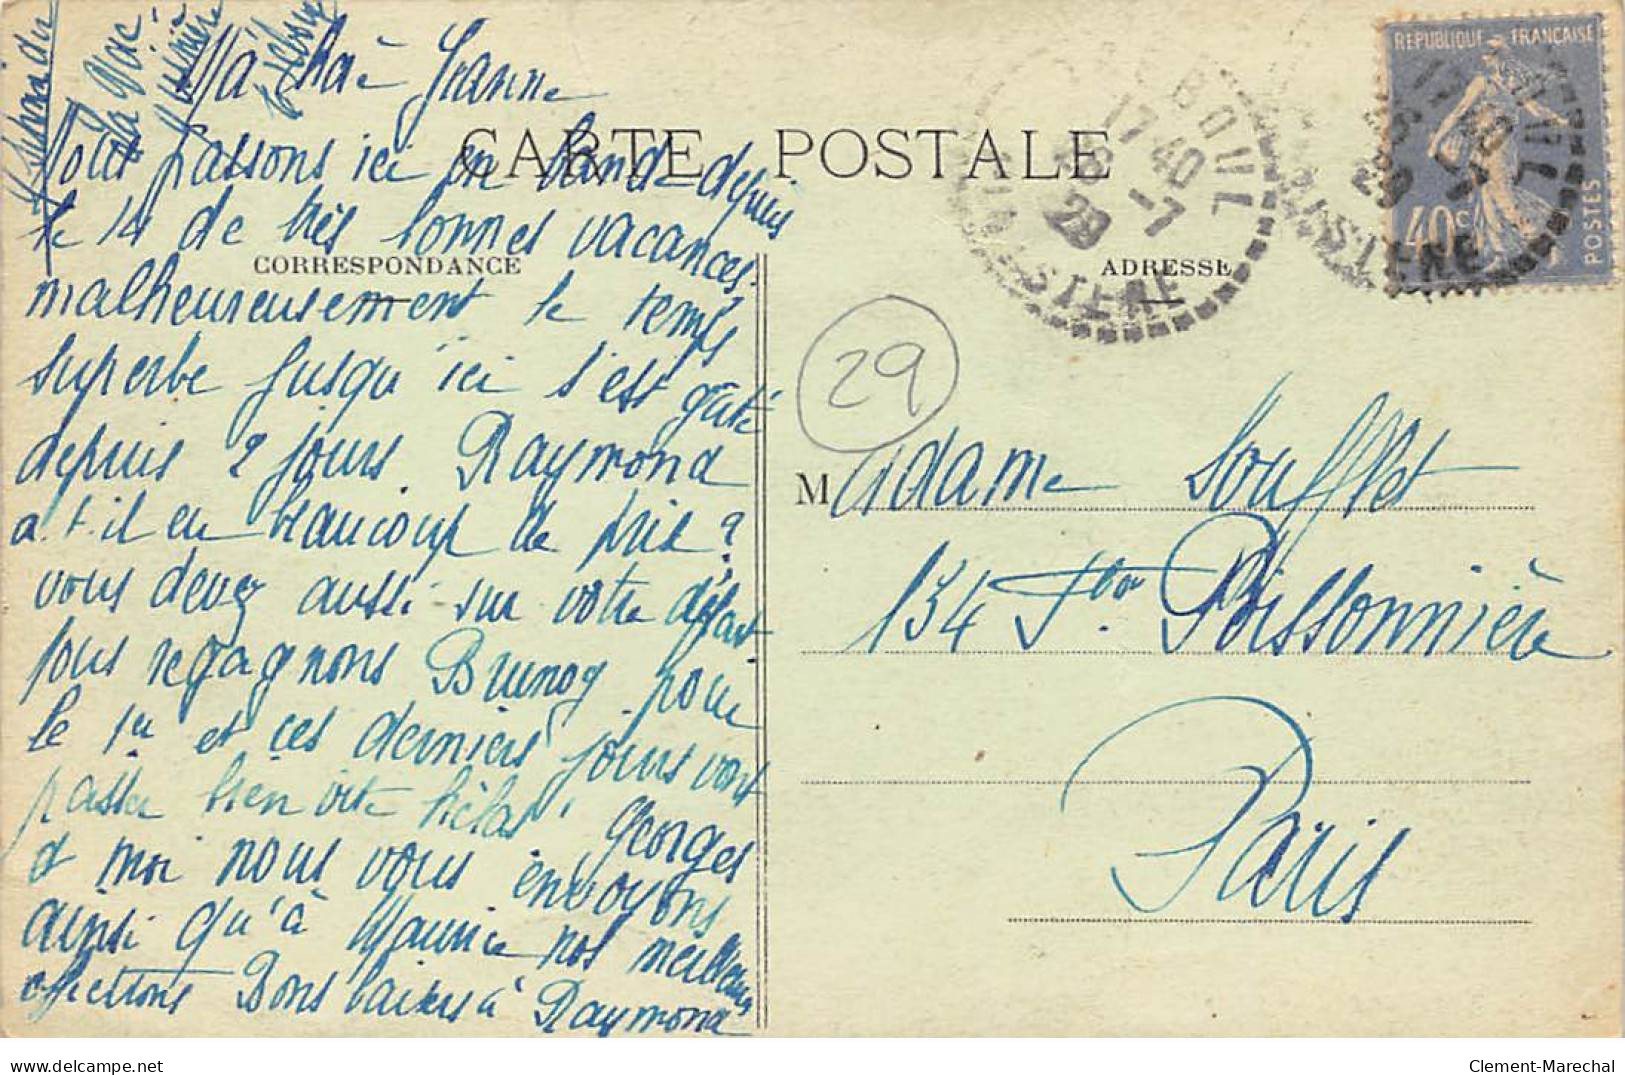 Ma chère Jeanne
CARTE POSTALE
Nous passons ici en bande depuis
le 14 de très bonnes vacances.
CORRESPONDANCE
malheureusement le temps
superbe jusqu'ici s'est gâté
depuis 2 jours. Raymond
a-t-il eu beaucoup de prix ?
vous devez aussi sur votre départ
nous regagnons Brunoy pour
le 1er et ces derniers jours vont
passer bien vite hélas ! Georges
et moi nous vous envoyons
ainsi qu'à Maurice nos meilleures
affections Bons baisers à Raymond
ADRESSE
29
Madame Soufflet
134 Fbg Poissonnière
Paris
REPUBLIQUE FRANÇAISE
40c
POSTES
17 40
-7
29
FINISTERE
delcampe.net
Clement-Marechal